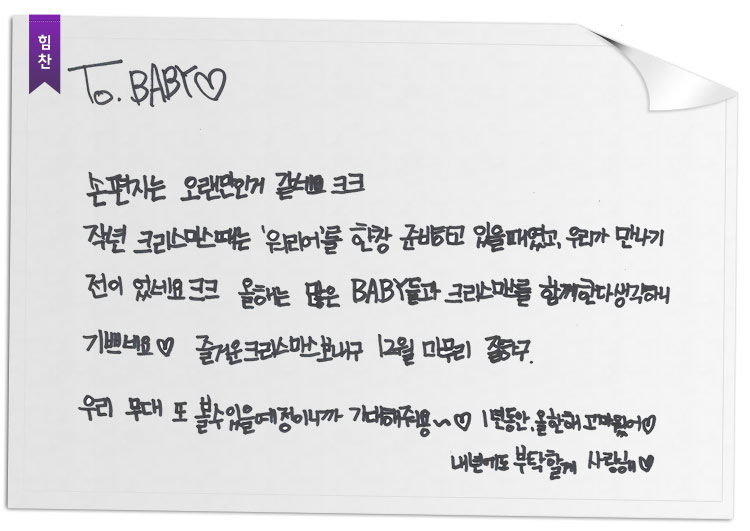 힘찬
To. BABY♡
손편지는 오랜만인거 같네요 크크
작년 크리스마스때는 '워리어'를 한창 준비하고 있을때였고, 우리가 만나기
전이 었네요 크크 올해는 많은 BABY들과 크리스마스를 함께한다 생각하니
기쁘네요♡ 즐거운 크리스마스 보내구 12월 마무리 잘하구.
우리 무대 또 볼수있을예정이니까 기대해줘용~♡ 1년동안, 올한해 고마웠어♡
내년에도 부탁할게 사랑해♡